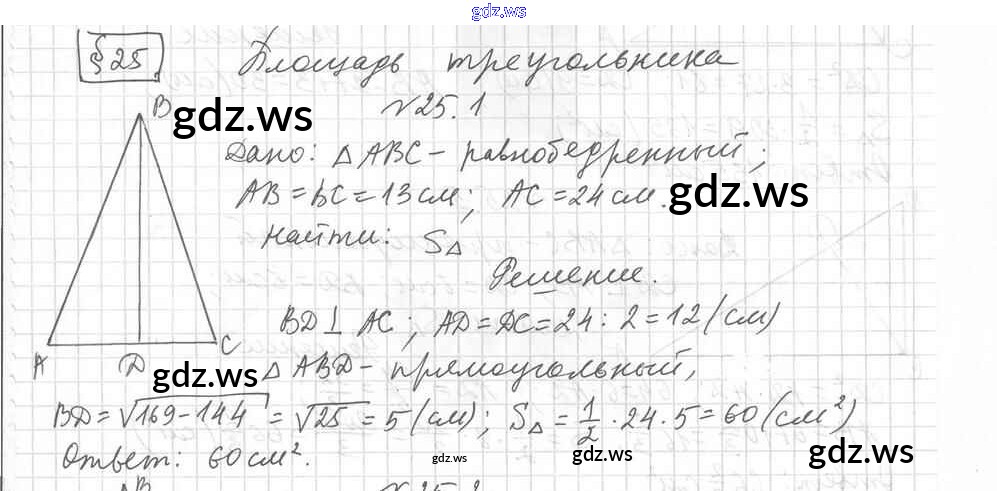 gdz.ws
§ 25 Площадь треугольника
B gdz.ws №25.1
Дано: △ ABC - равнобедренный;
AB = BC = 13 см; AC = 24 см. gdz.ws
Найти: S△
Решение.
BD ⊥ AC; AD = DC = 24 : 2 = 12 (см)
A D C
gdz.ws △ ABD - прямоугольный,
BD = √169 - 144 = √25 = 5 (см); S△ = 1/2 · 24 · 5 = 60 (см²)
Ответ: 60 см². gdz.ws gdz.ws gdz.ws